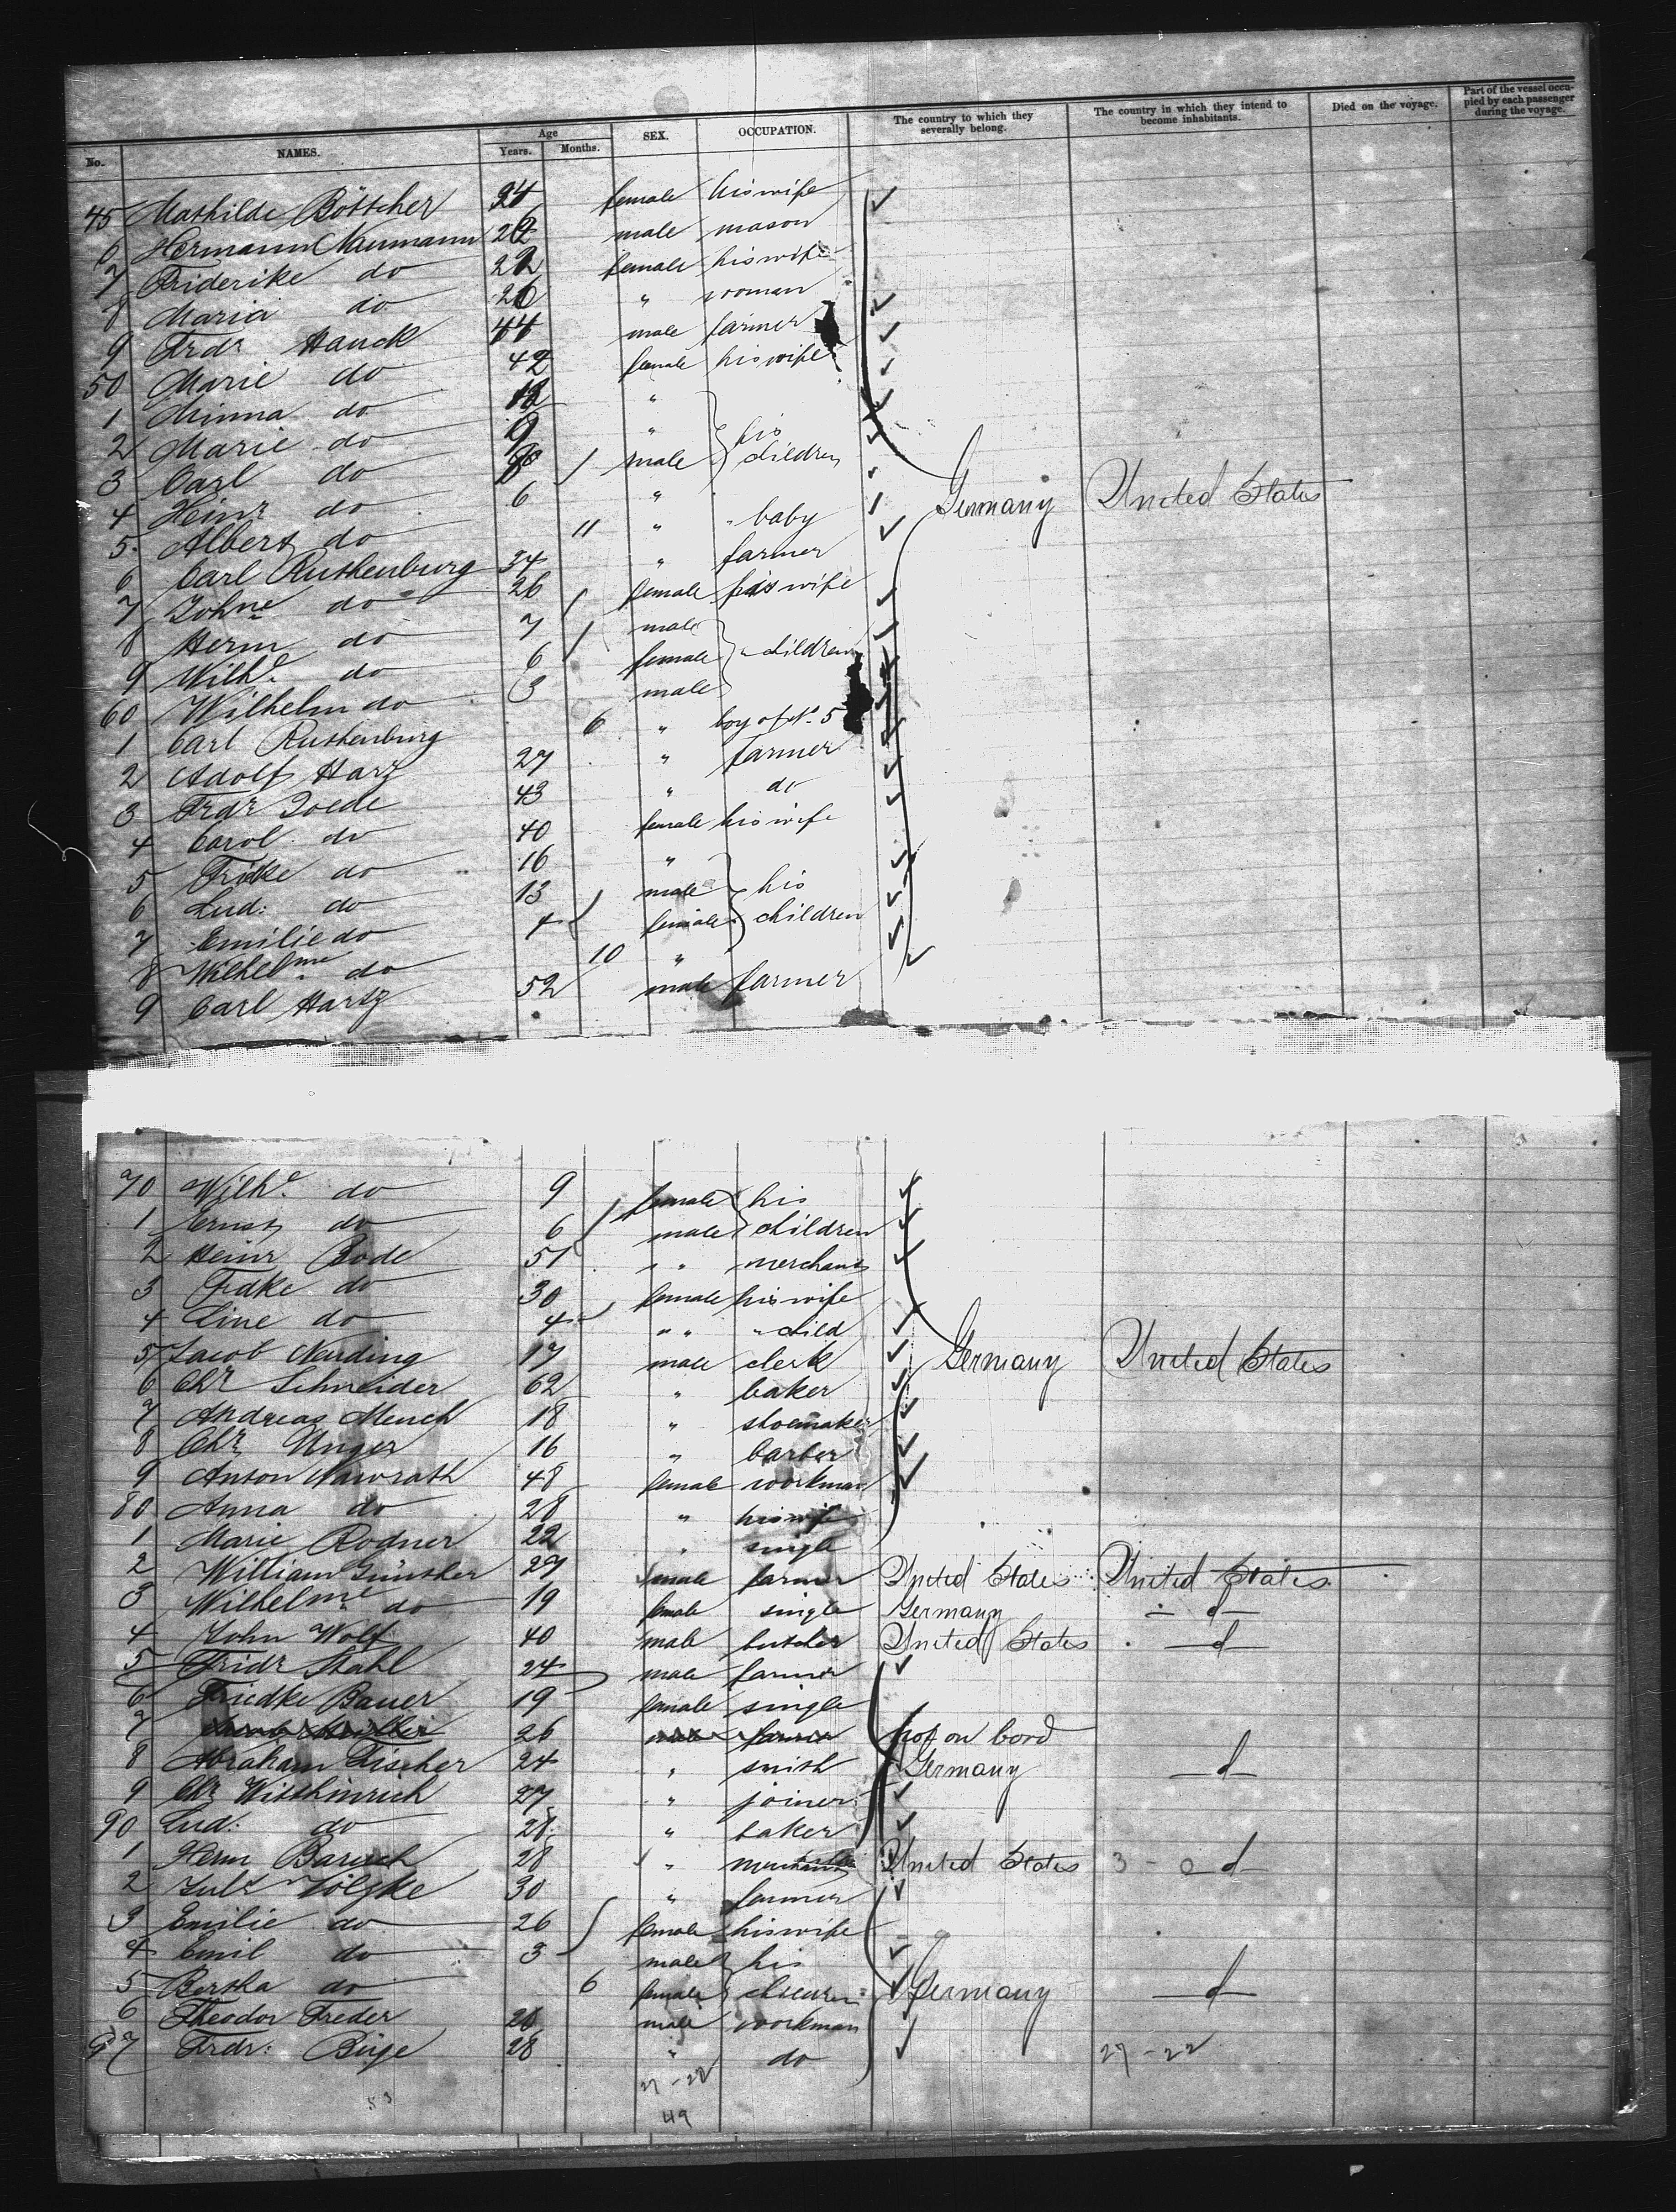 No. NAMES. Age Years. Months. SEX. OCCUPATION. The country to which they severally belong. The country in which they intend to become inhabitants. Died on the voyage. Part of the vessel occupied by each passenger during the voyage.
45 Mathilde Böttcher 24 female his wife
6 Hermann Naumann male mason
7 Friderike do 22 female his wife
8 Maria do 26 " woman
9 Frdr Hauck 44 male farmer
50 Marie do 42 female his wife
1 Minna do "
2 Marie do 9 " his
3 Carl do 8 male children
4 Heinr do 6 " Germany United States
5 Albert do 11 " " baby
6 Carl Ruthenburg 34 " farmer
7 Johne do 26 female his wife
8 Herm do 7 male
9 Wilhe do 6 female " children
60 Wilhelm do 3 male
1 Carl Ruthenburg 6 " boy of No. 5
2 Adolf Harz 27 " farmer
3 Frdr Goede 43 " do
4 Carol. do 40 female his wife
5 Fridke do 16 "
6 Lud: do 13 male his
7 Emilie do 4 female children
8 Wilhelme do 10 "
9 Carl Hartz 52 male farmer
70 Wilhe do 9 female his
1 Ernst do 6 male children
2 Heinr Bode 51 " " merchant
3 Frdke do 30 female his wife
4 Line do 4 " " " child
5 Jacob Neuding 17 male clerk Germany United States
6 Chr Schneider 62 " baker
7 Andreas Meuch 18 " shoemaker
8 Chr Unger 16 " barber
9 Anton Nawrath 48 female workman
80 Anna do 28 " his wife
1 Marie Rodner 22 " single
2 William Günther 27 male farmer United States United States
3 Wilhelme do 19 female single Germany - d -
4 John Wolf 40 male butcher United States - d -
5 Fridr Stahl 24 male farmer
6 Friedke Bauer 19 female single
7 Müller 26 male farmer not on bord
8 Abraham Fischer 24 " smith Germany - d -
9 Chr Witthinrich 27 " joiner
90 Lud: do 28 " baker
1 Herm Baruch 28 " merchant United States 3 - 0 d
2 Juls Völzke 30 " farmer
3 Emilie do 26 female his wife
4 Emil do 3 male his
5 Bertha do 6 female children Germany - d -
6 Theodor Freder 26 male workman
97 Frdr: Büge 28 " do 27 - 22
53 27 - 22
49